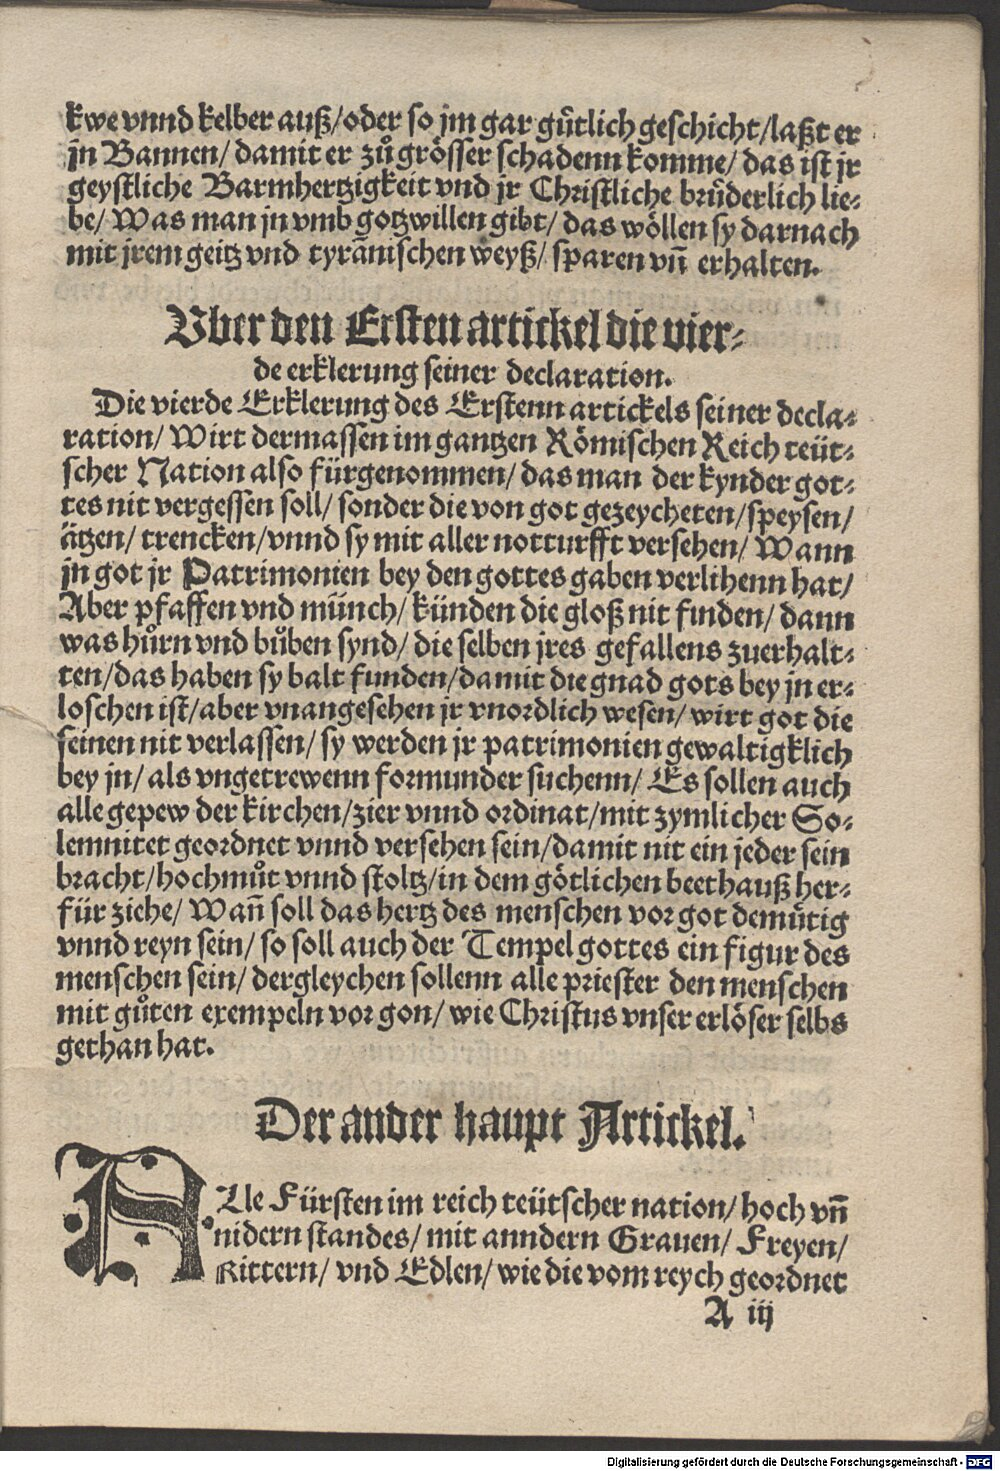 kwe vnnd kelber auß/oder so jm gar guͤtlich geschicht/laßt er
jn Bannen/ damit er zuͦ groͤsser schadenn komme/ das ist jr
geystliche Barmhertzigkeit vnd jr Christliche bruͤderlich lie-
be/ Was man jn vmb gotzwillen gibt/ das woͤllen sy darnach
mit jrem geitz vnd tyrãnischen weyß/ sparen vñ erhalten.
Vber den Ersten artickel die vier-
de erklerung seiner declaration.
Die vierde Erklerung des Erstenn artickels seiner decla-
ration/ Wirt dermassen im gantzen Roͤmischen Reich teüt-
scher Nation also fürgenommen/ das man der kynder got-
tes nit vergessen soll/ sonder die von got gezeycheten/ speysen/
aͤtzen/ trencken/ vnnd sy mit aller notturfft versehen/ Wann
jn got jr Patrimonien bey den gottes gaben verlihenn hat/
Aber pfaffen vnd muͤnch/ künden die gloß nit finden/ dann
was huͦrn vnd buͦben synd/ die selben jres gefallens zuerhalt-
ten/das haben sy balt funden/damit die gnad gots bey jn er-
loschen ist/aber vnangesehen jr vnordlich wesen/ wirt got die
seinen nit verlassen/ sy werden jr patrimonien gewaltigklich
bey jn/ als vngetrewenn formunder suchenn/ Es sollen auch
alle gepew der kirchen/zier vnnd ordinat/mit zymlicher So-
lemnitet geordnet vnnd versehen sein/damit nit ein jeder sein
bracht/hochmuͦt vnnd stoltz/in dem goͤtlichen beethauß her-
für ziehe/ Wañ soll das hertz des menschen vor got demuͤtig
vnnd reyn sein/ so soll auch der Tempel gottes ein figur des
menschen sein/ dergleychen sollenn alle priester den menschen
mit guͦten exempeln vor gon/ wie Christus vnser erloͤser selbs
gethan hat.
Der ander haupt Artickel.
ALle Fürsten im reich teütscher nation/ hoch vñ
nidern standes/ mit anndern Grauen/ Freyen/
Rittern/ vnd Edlen/ wie die vom reych geordnet
A iij
Digitalisierung gefördert durch die Deutsche Forschungsgemeinschaft - DFG